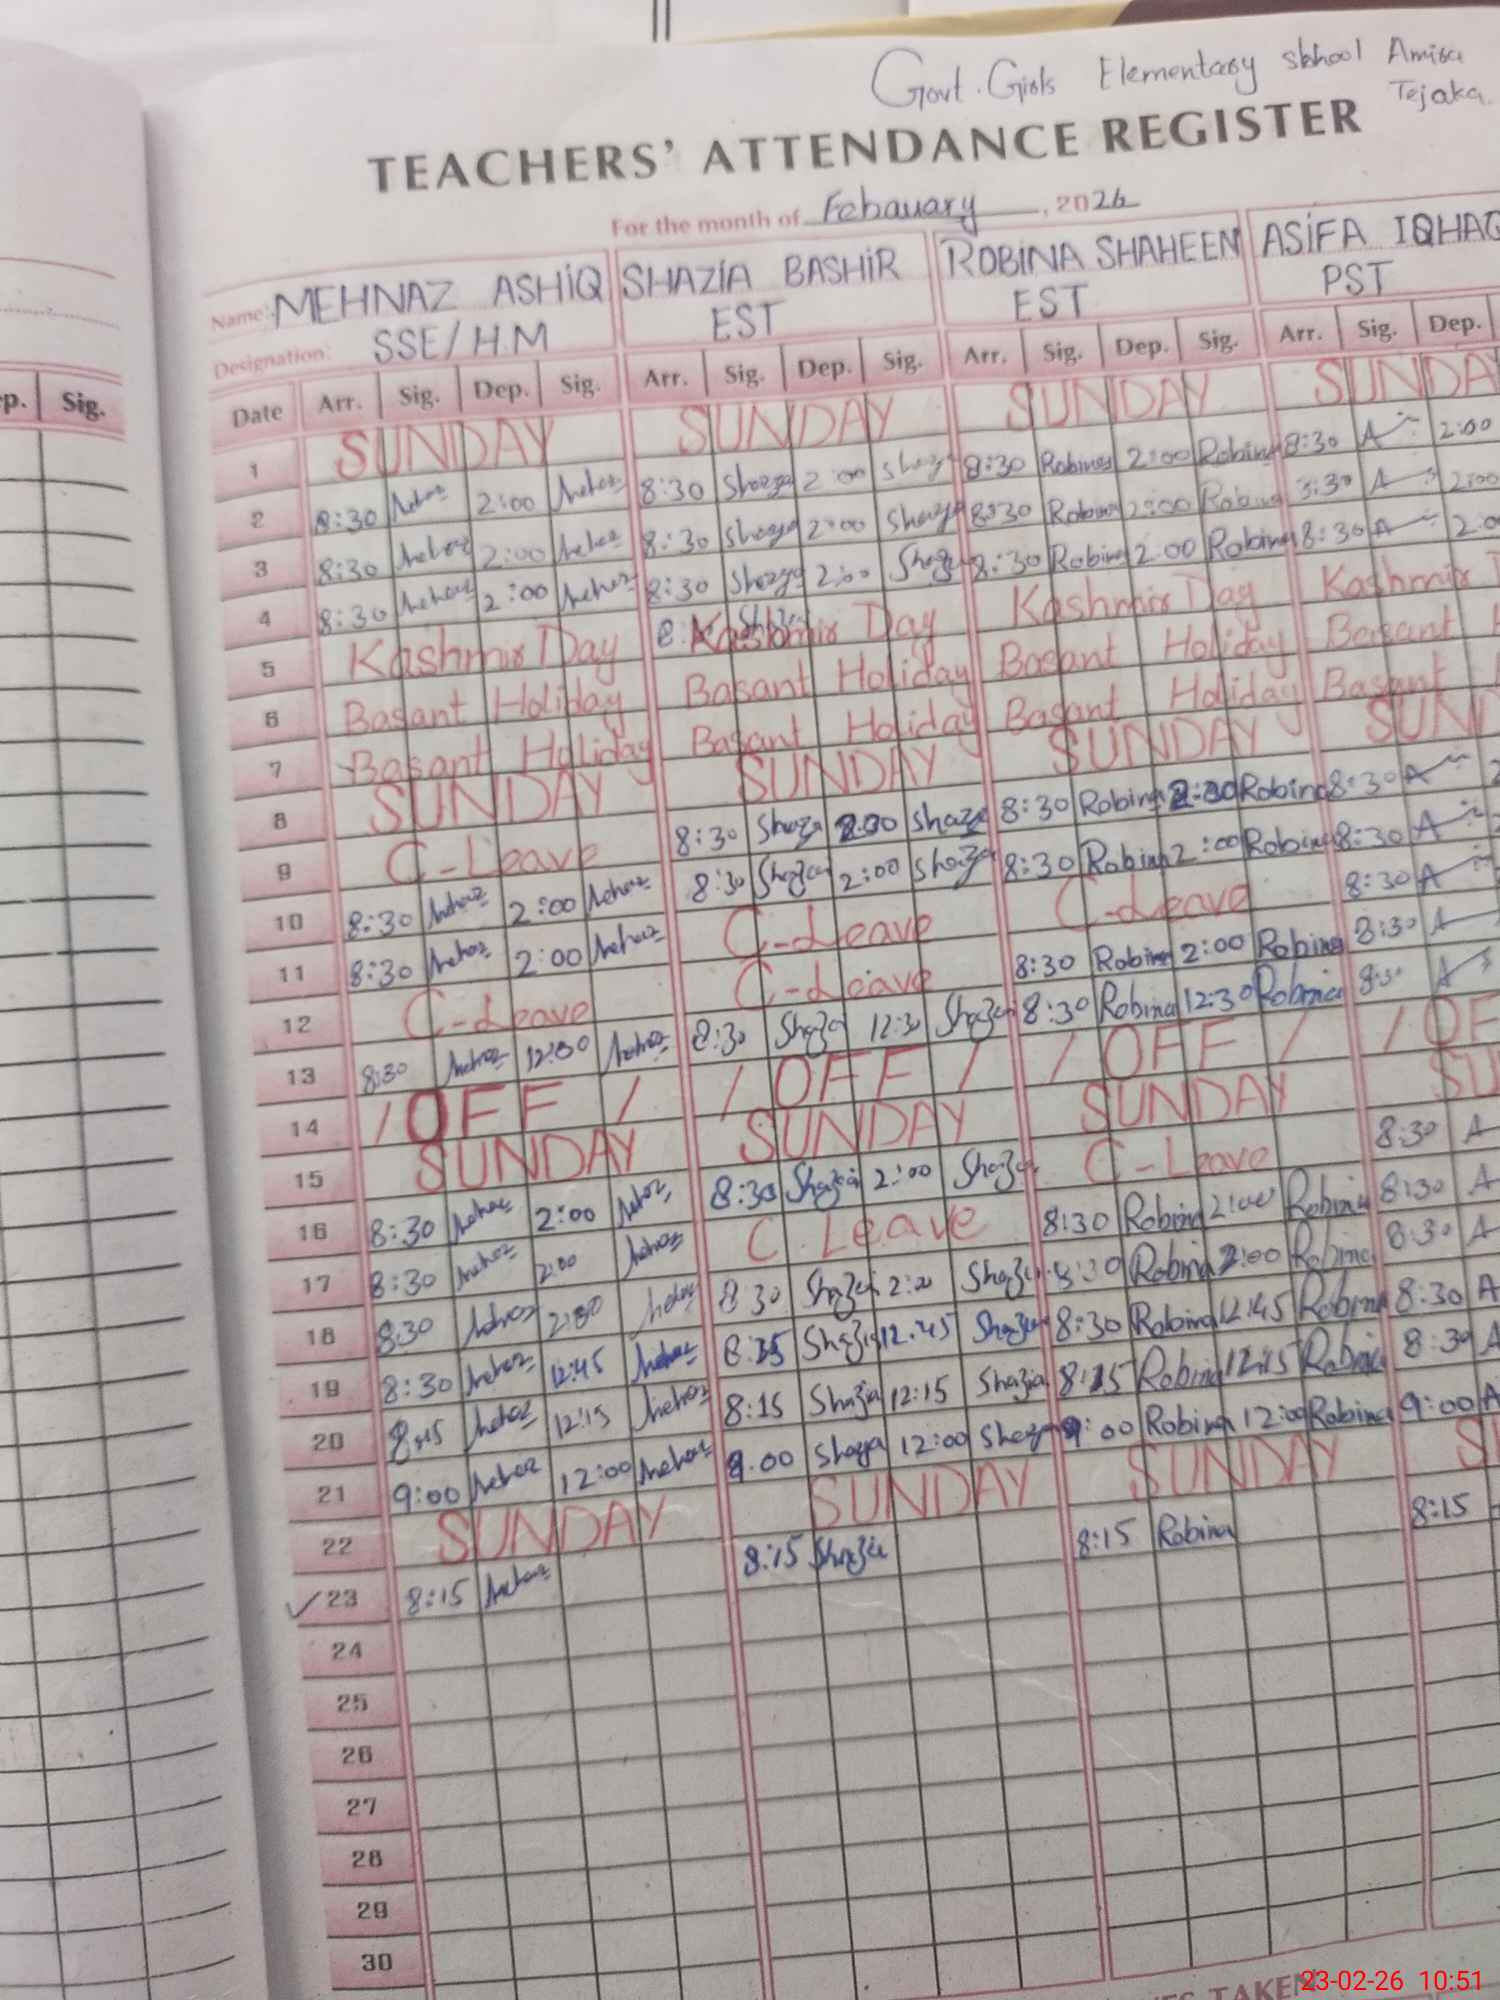 Govt. Girls Elementary skhool Amira
Tejaka.
TEACHERS' ATTENDANCE REGISTER
For the month of Febauary, 2026
Name: MEHNAZ ASHIQ SHAZIA BASHIR ROBINA SHAHEEN ASIFA IQHAQ
Designation: SSE/H.M EST EST PST
p. Sig.
Date Arr. Sig. Dep. Sig. Arr. Sig. Dep. Sig. Arr. Sig. Dep. Sig. Arr. Sig. Dep.
1 SUNDAY SUNDAY SUNDAY SUNDA
2 8:30 2:00 8:30 2:00 8:30 Robina 2:00 Robina 8:30 A 2:00
3 8:30 2:00 8:30 2:00 8:30 Robina 2:00 Robina 8:30 A 2:00
4 8:30 2:00 8:30 2:00 8:30 Robina 2:00 Robina 8:30 A 2:0
5 Kashmir Day Kashmir Day Kashmir Day Kashmir
6 Basant Holiday Basant Holiday Basant Holiday Basant
7 Basant Holiday Basant Holiday Basant Holiday Basant
8 SUNDAY SUNDAY SUNDAY SUN
9 C-Leave 8:30 2:00 8:30 Robina 2:00 Robina 8:30 A
10 8:30 2:00 8:30 2:00 8:30 Robina 2:00 Robina 8:30 A
11 8:30 2:00 C-Leave C-Leave 8:30 A
12 C-Leave C-Leave 8:30 Robina 2:00 Robina 8:30 A
13 8:30 12:30 8:30 12:30 8:30 Robina 12:30 Robina 8:30 A
14 / OFF / / OFF / / OFF / / OF
15 SUNDAY SUNDAY SUNDAY SU
16 8:30 2:00 8:30 Shazia 2:00 C-Leave 8:30 A
17 8:30 2:00 C.Leave 8:30 Robina 2:00 Robina 8:30 A
18 8:30 2:00 8:30 2:00 8:30 Robina 2:00 Robina 8:30 A
19 8:30 12:45 8:35 Shazia 12:45 8:30 Robina 12:45 Robina 8:30 A
20 8:15 12:15 8:15 Shazia 12:15 Shazia 8:15 Robina 12:15 Robina 8:30 A
21 9:00 12:00 9.00 12:00 9:00 Robina 12:00 Robina 9:00 A
22 SUNDAY SUNDAY SUNDAY S
✓23 8:15 8:15 Shazia 8:15 Robina 8:15
24
25
26
27
28
29
30
TAKEN
23-02-26 10:51